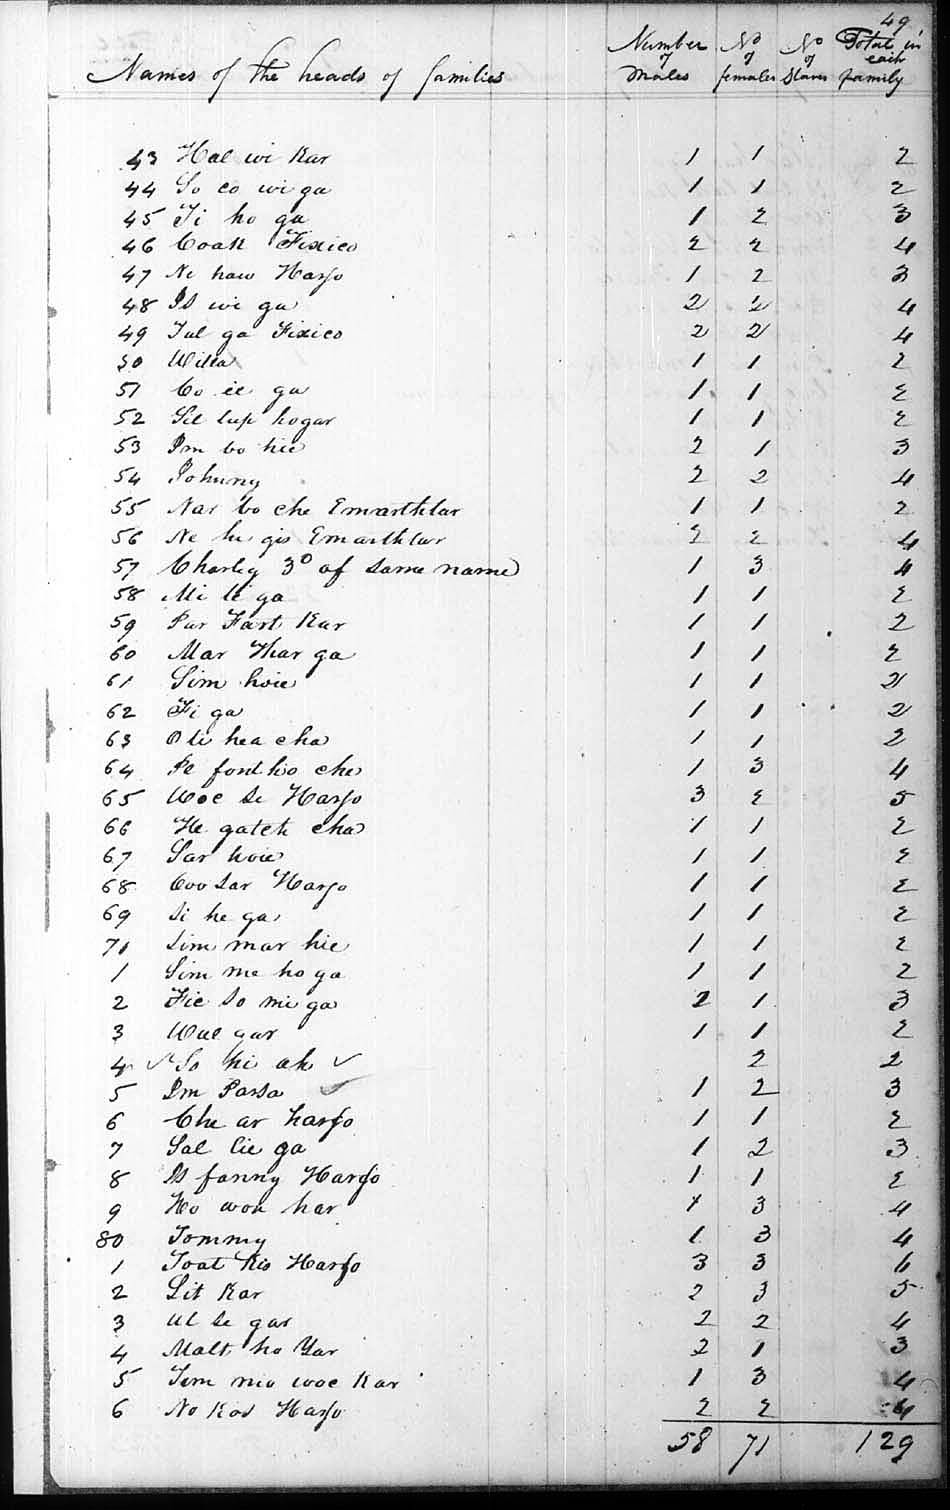 49
Names of the heads of families Number of Males No of females No of Slaves Total in each family
43 Hal wi Kar 1 1 2
44 So co wi ga 1 1 2
45 Ti ho ga 1 2 3
46 Coak Fixico 2 2 4
47 Ne haw Harjo 1 2 3
48 Is wi ga 2 2 4
49 Tul ga Fixico 2 2 4
50 Willa 1 1 2
51 Co ie ga 1 1 2
52 Sil lup hogar 1 1 2
53 Im bo hie 2 1 3
54 Johnny 2 2 4
55 Nar bo che Emarthlar 1 1 2
56 Ne hu gis Emarthlar 2 2 4
57 Charley 3d of same name 1 3 4
58 Mi li ga 1 1 2
59 Par Fast Kar 1 1 2
60 Mar Thar ga 1 1 2
61 Sim hoie 1 1 2
62 Fi ga 1 1 2
63 O li hea cha 1 1 2
64 Il font ho che 1 3 4
65 Woc se Harjo 3 2 5
66 He gatch cha 1 1 2
67 Sar hoie 1 1 2
68 Coo sar Harjo 1 1 2
69 Si he ga 1 1 2
71 Sim mar hie 1 1 2
1 Sim me ho ga 1 1 2
2 Fic so mi ga 2 1 3
3 Wal gar 1 1 2
4 ✓ So hi ak ✓ 2 2
5 Im Parsa 1 2 3
6 Che ar harjo 1 1 2
7 Sal lie ga 1 2 3
8 Is fanny Harjo 1 1 2
9 Ho wok har 1 3 4
80 Tommy 1 3 4
1 Toat kis Harjo 3 3 6
2 Lit Kar 2 3 5
3 Ul se gar 2 2 4
4 Malt ho Yar 2 1 3
5 Tim mio woc Kar 1 3 4
6 No Kos Harjo 2 2 4
58 71 129